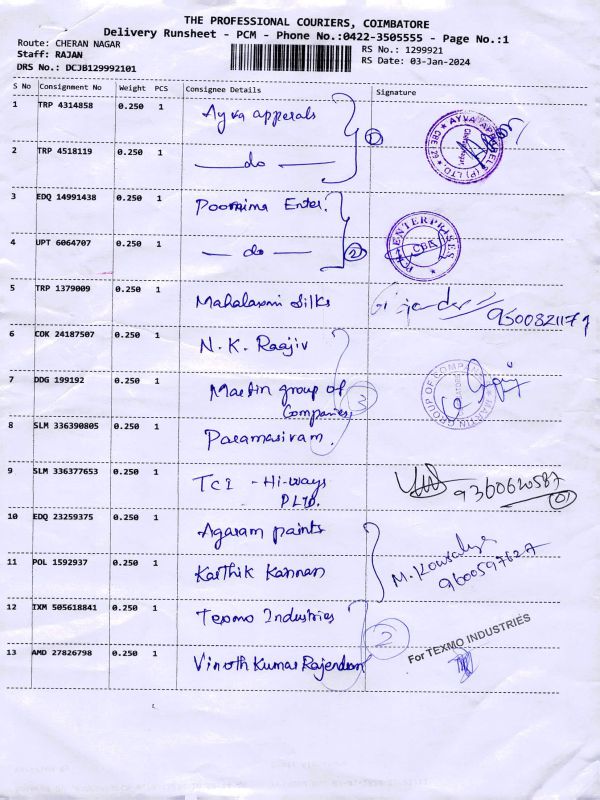 THE PROFESSIONAL COURIERS, COIMBATORE
Delivery Runsheet - PCM - Phone No.:0422-3505555 - Page No.:1
Route: CHERAN NAGAR RS No.: 1299921
Staff: RAJAN RS Date: 03-Jan-2024
DRS No.: DCJB129992101
S No Consignment No Weight PCS Consignee Details Signature
1 TRP 4314858 0.250 1 Ayva apperals
AYVA APPARELS (P) LTD. CBE
2 TRP 4518119 0.250 1 — do — 1
3 EDQ 14991438 0.250 1 Poornima Enter.
ENTERPRISES CBE
4 UPT 6064707 0.250 1 — do — 2
5 TRP 1379009 0.250 1 Mahalaxmi Silks
6 COK 24187507 0.250 1 N. K. Raajiv
7 DDG 199192 0.250 1 Martin group of
Companies 3
MARTIN GROUP OF COMPANIES
8 SLM 336390805 0.250 1 Paramasivam.
9 SLM 336377653 0.250 1 TCI - Hi-ways
PLTD. 9360620587 01
10 EDQ 23259375 0.250 1 Agaram paints
11 POL 1592937 0.250 1 Karthik Kannan M. Kowsalya
12 TXM 505618841 0.250 1 Texmo Industries
2 For TEXMO INDUSTRIES
13 AMD 27826798 0.250 1 Vinoth Kumar Rajendran